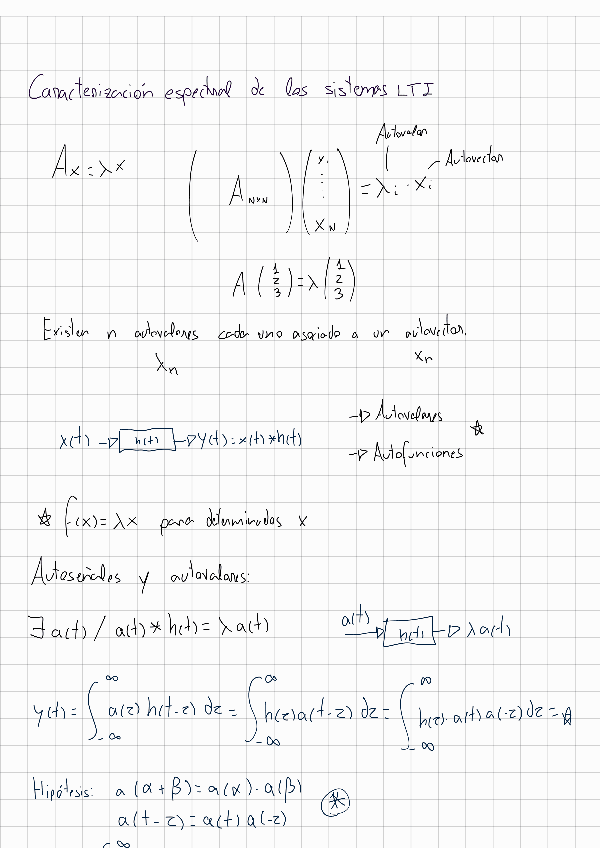 Caracterización espectral de los sistemas LTI
Autovalor
Ax = λx ( A NxN ) ( x₁ ⋮ x_N ) = λi · xi Autovector
A (1 2 3) = λ (1 2 3)
Existen n autovalores cada uno asociado a un autovector.
λn xn
→ Autovalores
x(t) → h(t) → y(t) = x(t) * h(t) ☆
→ Autofunciones
☆ f(x) = λx para determinados x
Autoseñales y autovalores:
∃ a(t) / a(t) * h(t) = λ a(t) a(t) → h(t) → λ a(t)
y(t) = ∫_{-∞}^{∞} a(z) h(t-z) dz = ∫_{-∞}^{∞} h(z) a(t-z) dz = ∫_{-∞}^{∞} h(z) · a(t) a(-z) dz = ☆
Hipótesis: a(α + β) = a(α) · a(β)
a(t-z) = a(t) a(-z) ⊛
∞